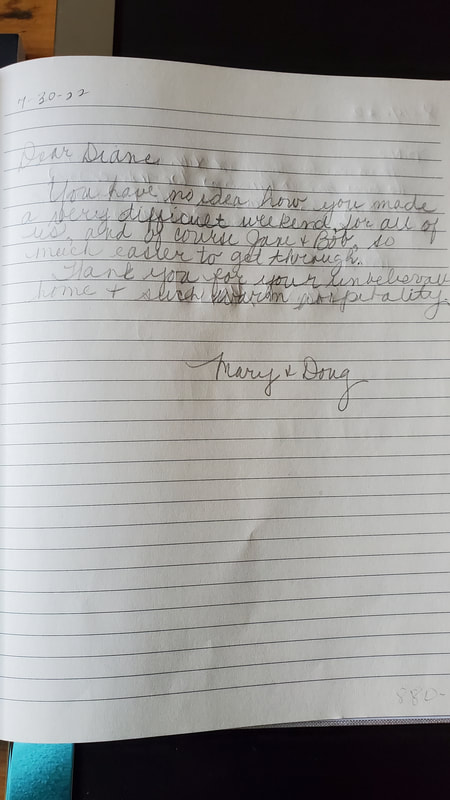 7-30-22
Dear Diane,
You have no idea how you made
a very difficult weekend, for all of
us, and of course Jane & Bob, so
much easier to get through.
Thank you for your unbelievab
home + such warm hospitality.
Mary & Doug